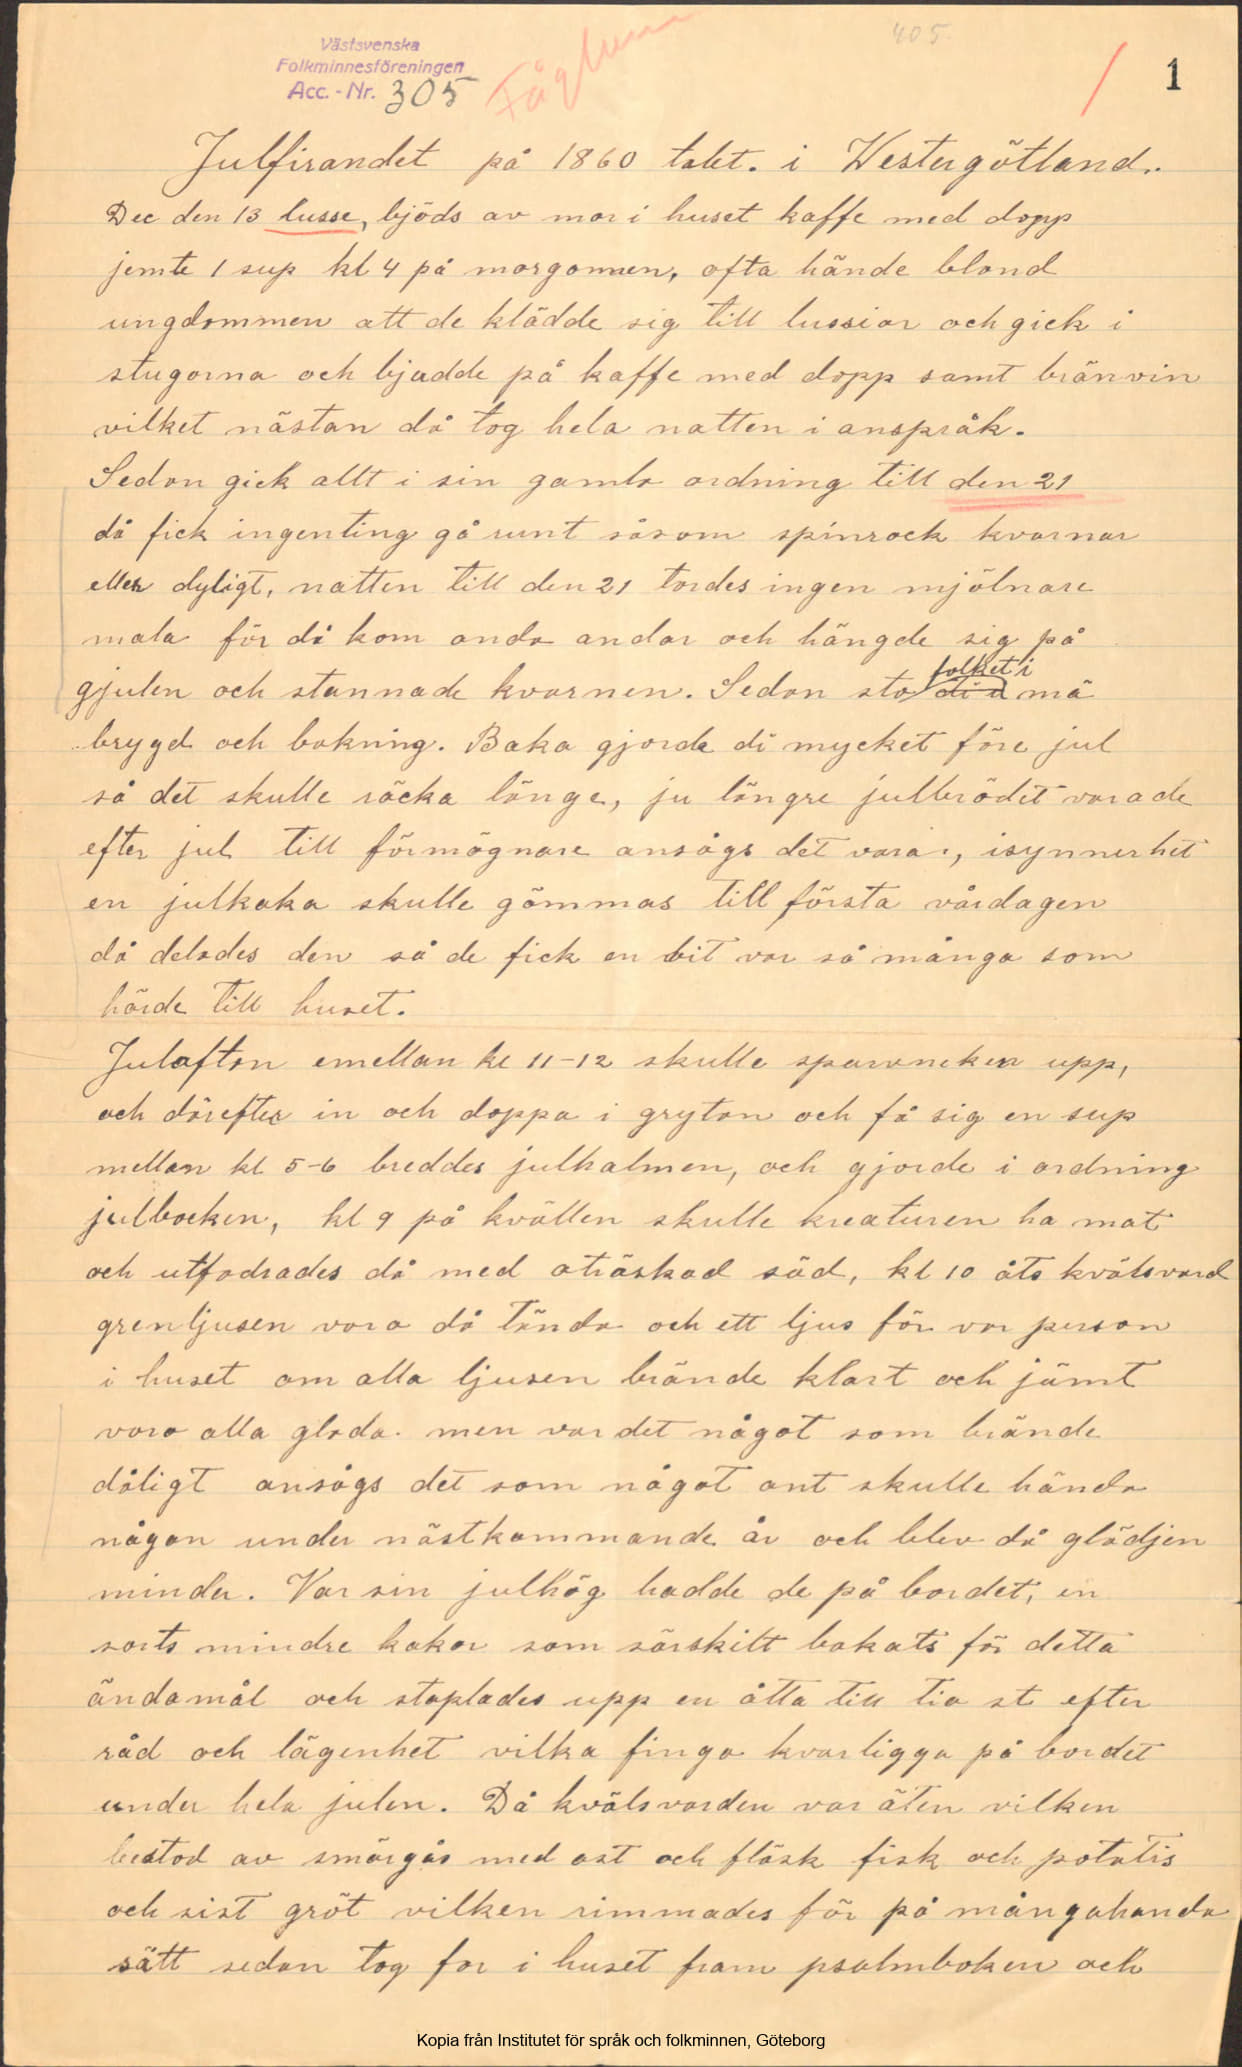 405.
Västsvenska
Folkminnesföreningen
Acc. - Nr. 305
Fåglum
1
Julfirandet på 1860 talet. i Westergötland..
Dec den 13 lusse, bjöds av mor i huset kaffe med dopp
jemte 1 sup kl 4 på morgonnen, ofta hände bland
ungdommen att de klädde sig till lussior och gick i
stugorna och bjudde på kaffe med dopp samt bränvin
vilket nästan då tog hela natten i anspråk.
Sedan gick allt i sin gamla ordning till den 21
då fick ingenting gå runt såsom spinrock kvarnar
eller dyligt, natten till den 21 tordes ingen mjölnare
mala för då kom onda andar och hängde sig på
gjulen och stannade kvarnen. Sedan sto folket i mä
brygd och bakning. Baka gjorde di mycket före jul
så det skulle räcka länge, ju längre julbrödet varade
efter jul till förmögnare ansågs det vara, isynnerhet
en julkaka skulle gömmas till första vårdagen
då delades den så de fick en bit var så många som
hörde till huset.
Julafton emellan kl 11-12 skulle sparvneken upp,
och därefter in och doppa i grytan och få sig en sup
mellan kl 5-6 breddes julhalmen, och gjorde i ordning
julbocken, kl 9 på kvällen skulle kreaturen ha mat
och utfodrades då med otröskad säd, kl 10 åts kvälsvard
grenljusen voro då tända och ett ljus för var person
i huset om alla ljusen brände klart och jämt
voro alla glada. men var det något som brände
dåligt ansågs det som något ont skulle hända
någon under nästkommande år och blev då glädjen
mindre. Var sin julhög hadde de på bordet, en
sorts mindre kakor som särskilt bakats för detta
ändamål och staplades upp en åtta till tio st efter
råd och lägenhet vilka fingo kvarligga på bordet
under hela julen. Då kvälsvarden var äten vilken
bestod av smörgås med ost och fläsk fisk och potatis
och sist gröt vilken rimmades för på mångahanda
sätt sedan tog far i huset fram psalmboken och
Kopia från Institutet för språk och folkminnen, Göteborg